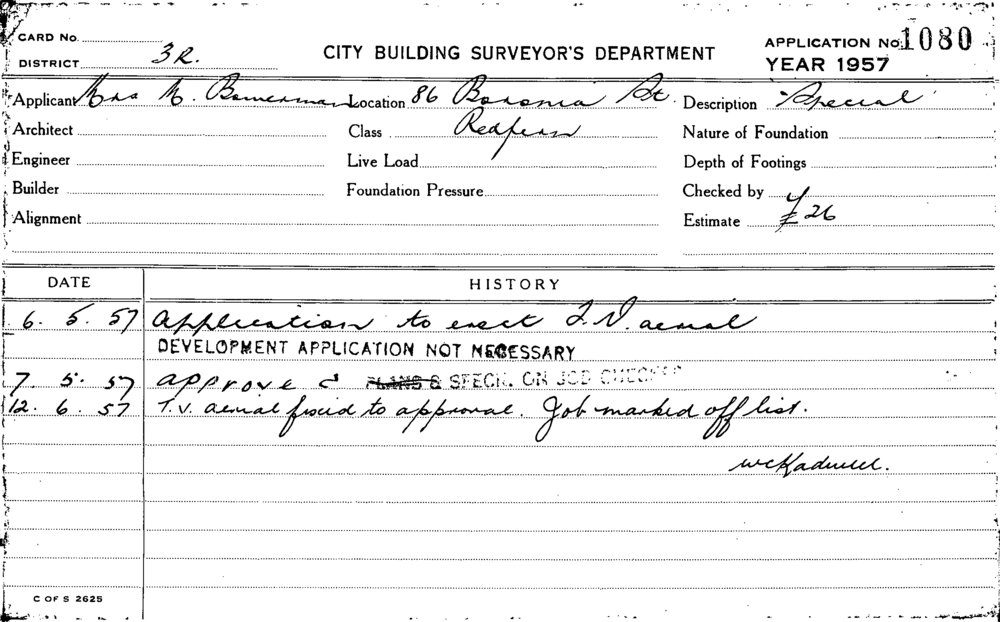 CARD No.
DISTRICT 3R.
CITY BUILDING SURVEYOR'S DEPARTMENT
APPLICATION No. 1080
YEAR 1957
Applicant Mrs M. Bowerman Location 86 Boronia St. Description Special
Architect Class Redfern Nature of Foundation
Engineer Live Load Depth of Footings
Builder Foundation Pressure Checked by
Alignment Estimate £26
DATE HISTORY
6. 5. 57 Application to erect T.V. aerial
DEVELOPMENT APPLICATION NOT NECESSARY
7. 5. 57 approve PLANS & SPECN. ON JOB CHECKED
12. 6. 57 T.V. aerial fixed to approval. Job marked off list.
C OF S 2625